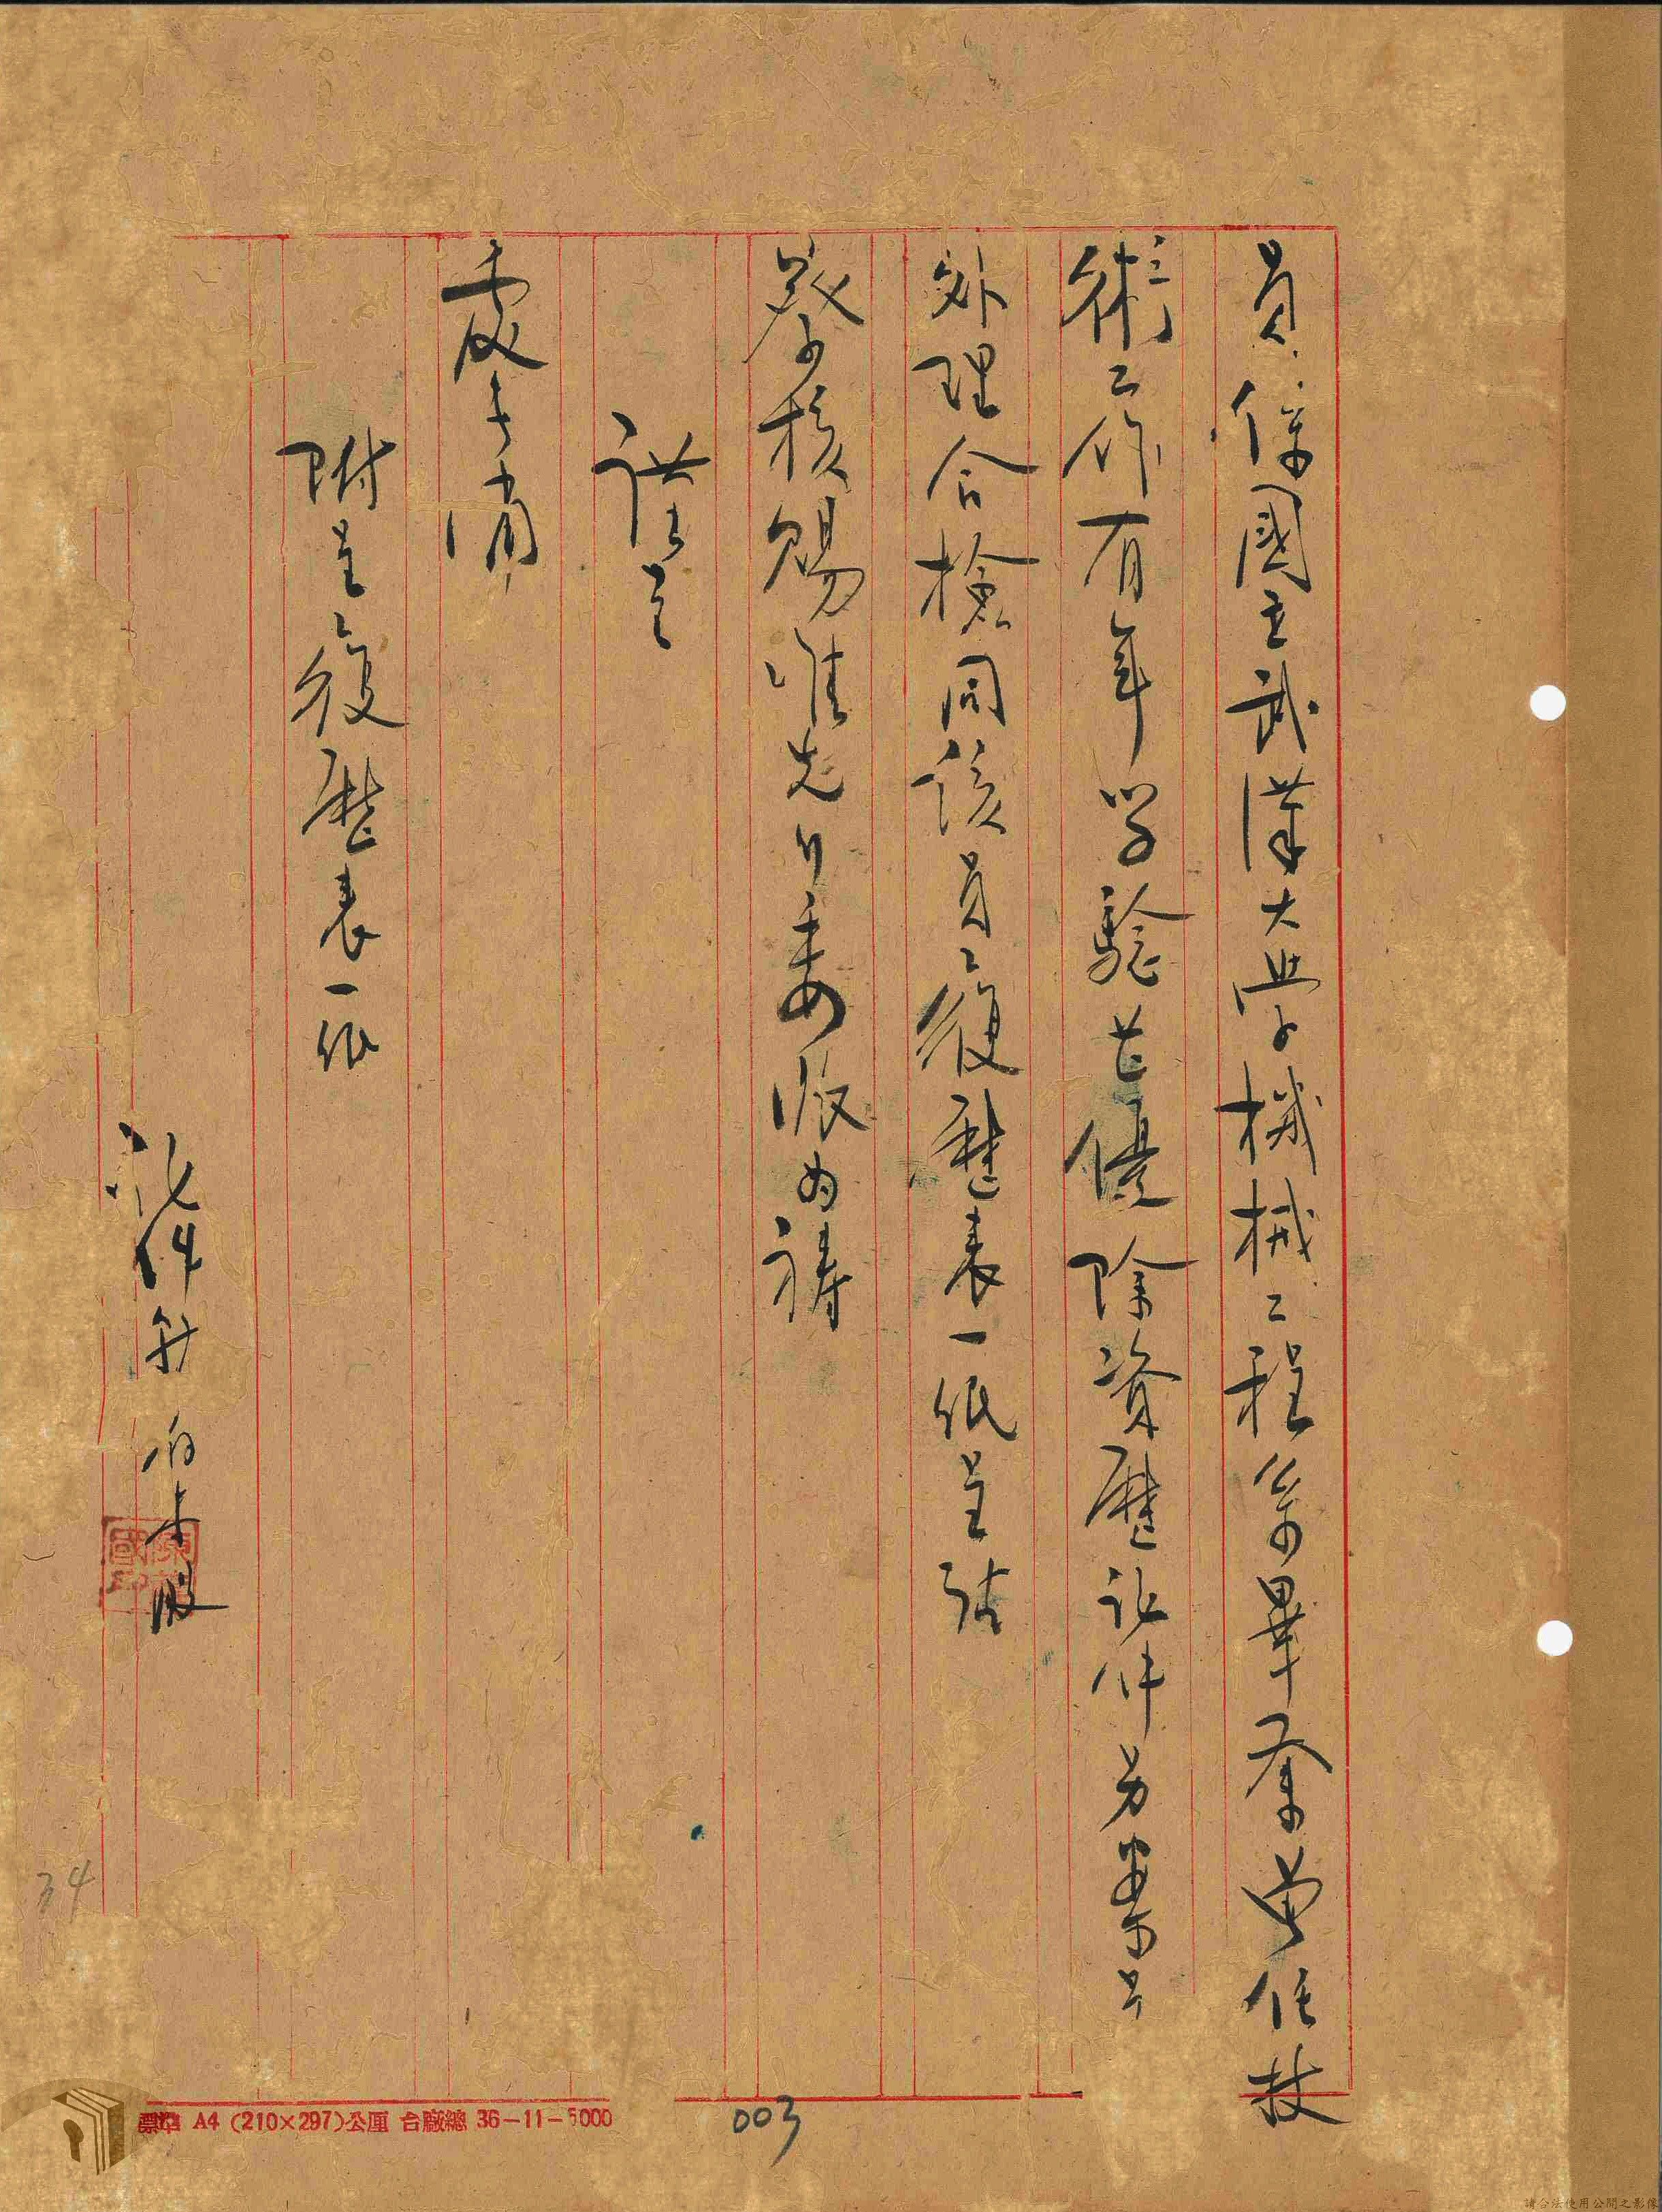 員係國立武漢大學機械工程系畢業曾任技
術工作有年學驗甚優除資歷證件另案呈
外理合檢同該員履歷表一紙呈請
鑒核賜准先行委派為禱
謹呈
處長
附呈履歷表一紙
職
標準 A4 (210×297)公厘 台廠總 36-11-5000
003
34
請合法使用公開之影像